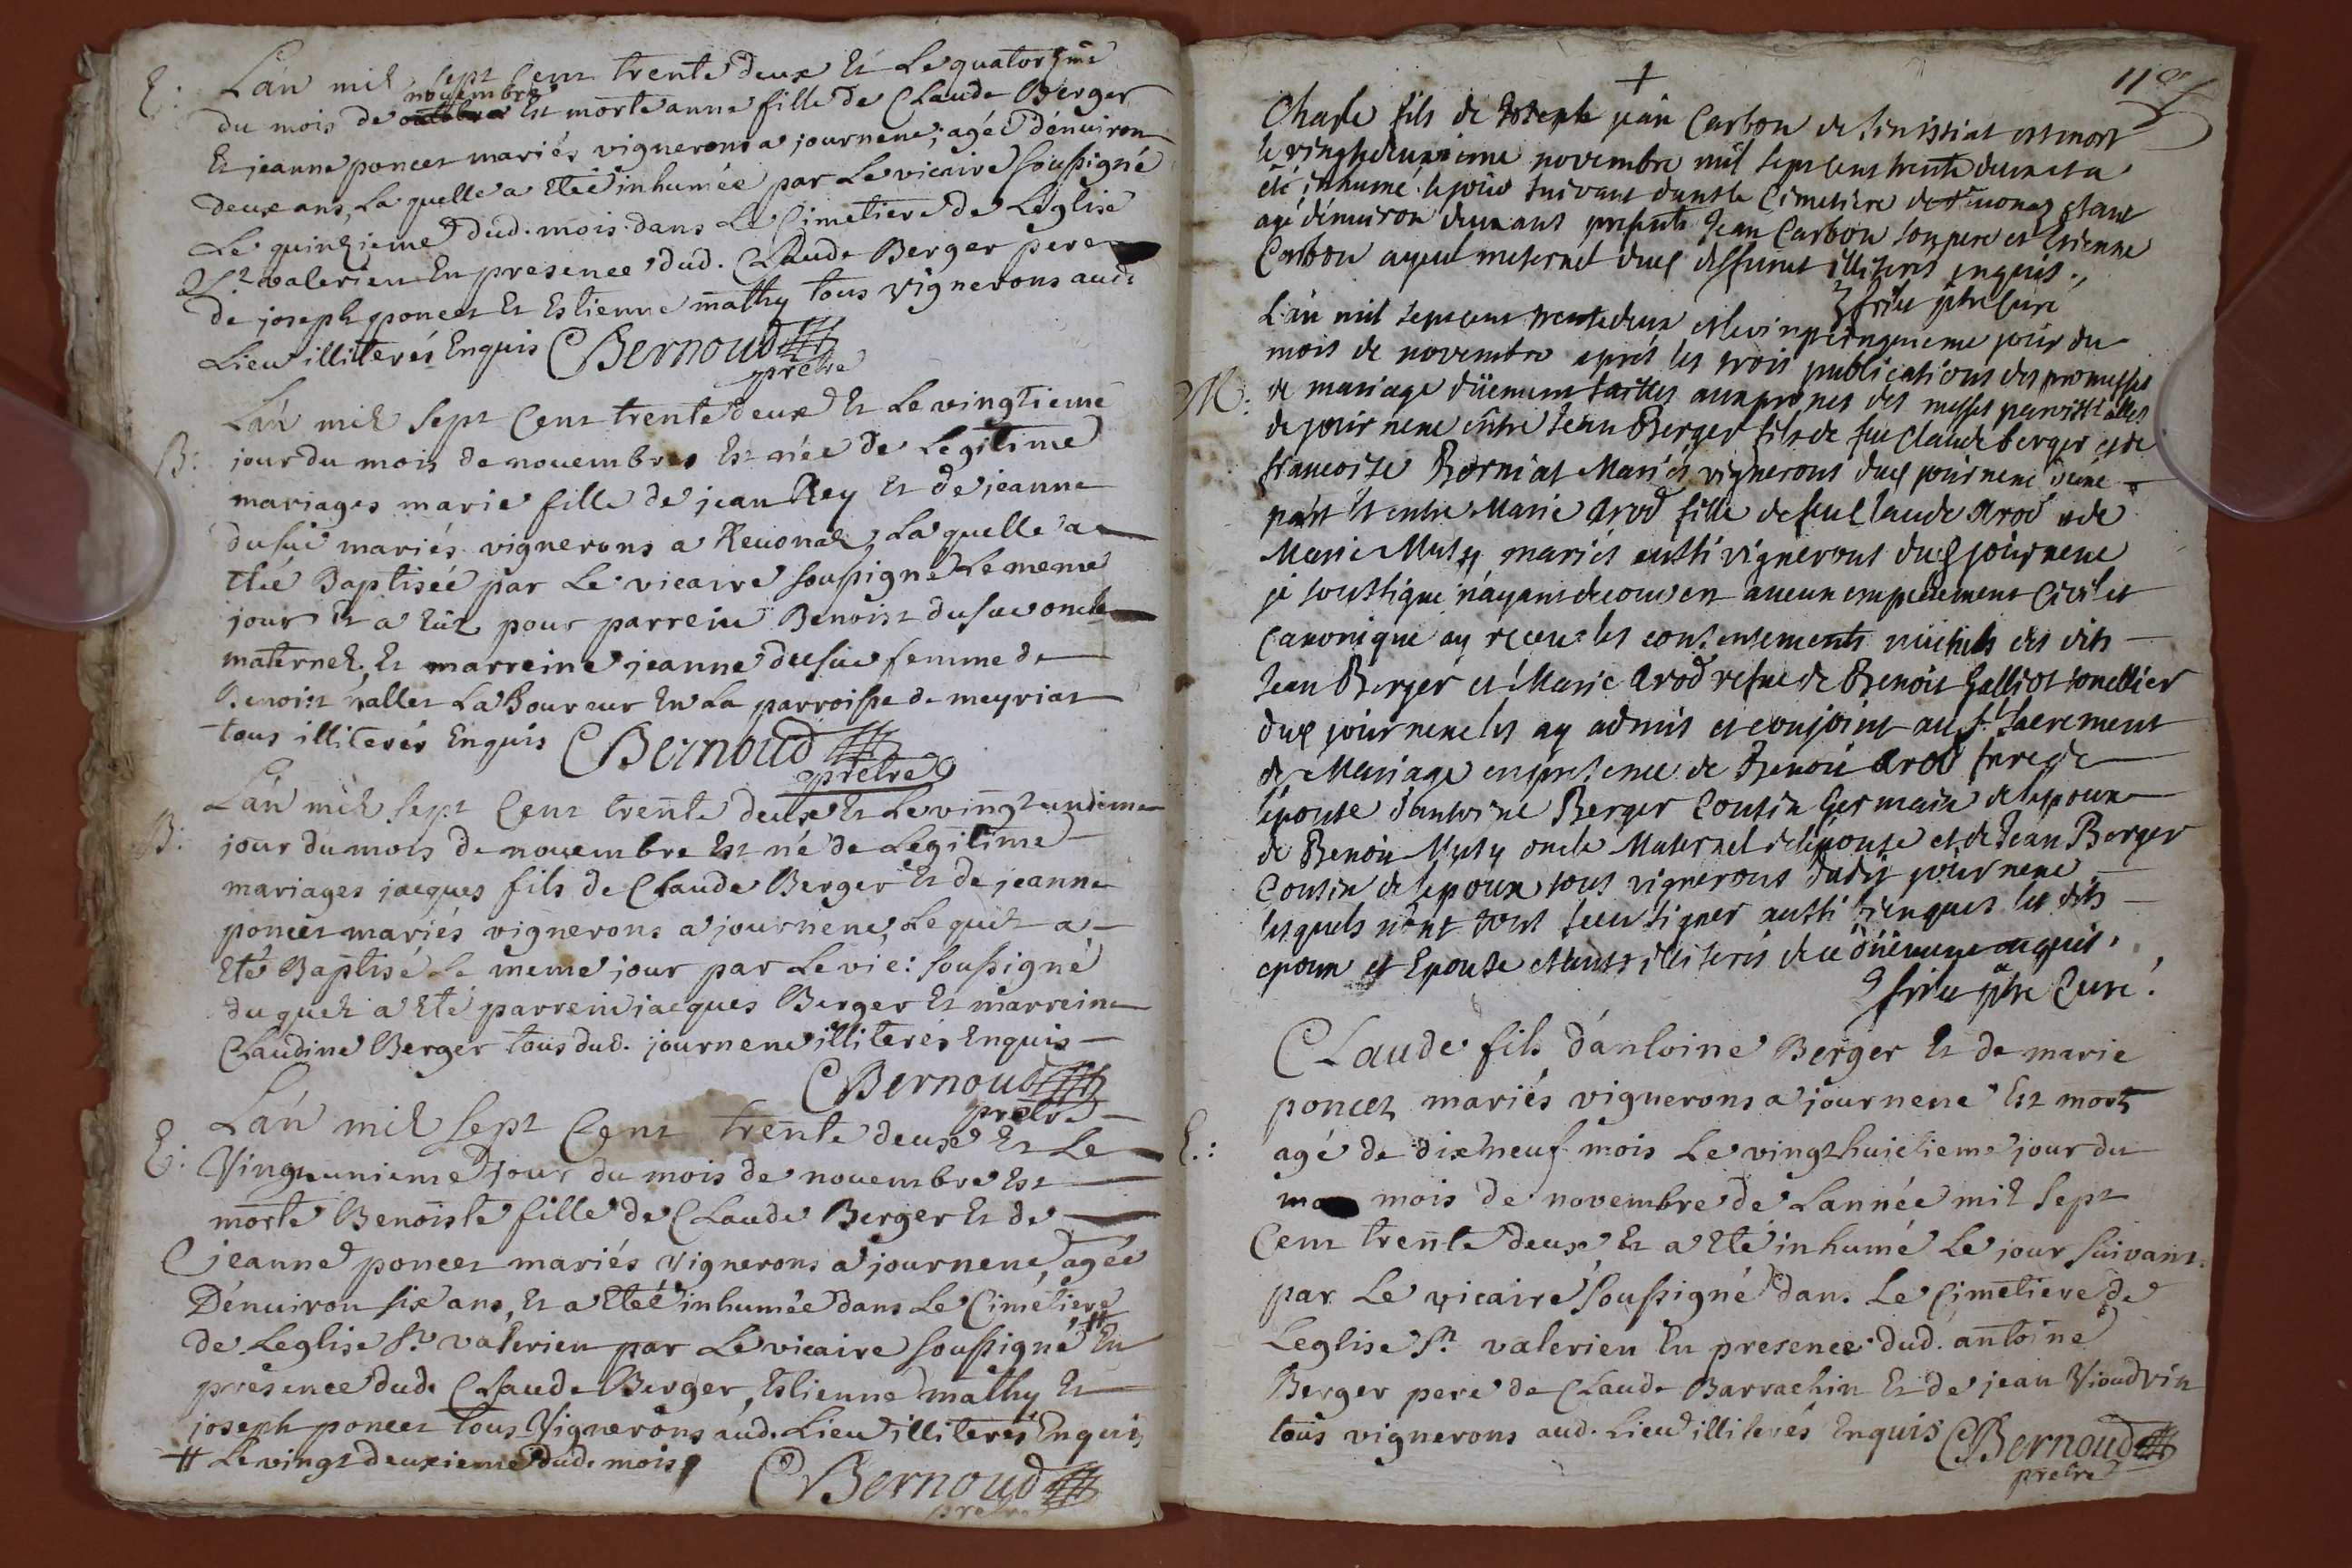 E: L'an mil sept cent trente deux et le quatorzime
du mois de octobre novembre est morte anne fille de Claude Berger
et jeanne poncet mariés vignerons a journene, agée d'enuiron
deux ans, laquelle a eteé inhumée par le vicaire soussigné
le quinzieme dud. mois dans le Cimetiere de Leglise
St valerien en presence dud. Claude Berger pere
de joseph poncet et Estienne mathy tous vignerons aud.
lieu illiterés Enquis CBernoud
prêtre
L'an mil sept Cent trente deux et le vingtieme
B: jour du mois de nouembres est née de Legitime
mariages marie fille de jean Rey et de jeanne
dusuc mariés vignerons a Reuonas, laquelle a
etée Baptisée par le vicaire soussigné le meme
jour et a eut pour parrein Benoist dusuc oncle
maternel, et marreine jeanne dusuc femme de
Benoist Laboureur en la parroisse de meyriat
tous illiterés Enquis CBernoud
prêtre
L'an mil sept Cent trente deux et le vingt undeme
B: jour du mois de nouembre est né de Legitime
mariages jacques fils de Claude Berger et de jeanne
poncet mariés vignerons a journene, lequel a
Eté Baptisé le meme jour par le vic: soussigné
duquel a eté parrein jacques Berger et marreine
Claudine Berger tous dud. journene illiterés Enquis
CBernoud
prêtre
L'an mil sept Cent trente deux et le
E: Vingtunieme jour du mois de nouembre est
morte Benoiste fille de Claude Berger et de
jeanne poncet mariés vignerons a journene, agée
D'enuiron six ans, et a eteé inhumée dans le Cimetiere
de Leglise St valerien par le vicaire soussigné # En
presence dud. Claude Berger, Estienne mathy et
joseph poncet tous Vignerons aud. lieu illiterés Enquis
# le vingt deuxieme dud. mois CBernoud
prêtre
118
Charle fils de Joseph jean Carbon de Senissiat est mort
le vingtdeuxieme novembre mil sept cent trente deux et a
été inhumé le jour suivant dans le Cimetiere de Reuonas etant
agé d'enuiron deux ans presents Jean Carbon son pere et Etienne
Carbon ayeul meternel duq deffunct illiterés enquis.
ptre Curé
L'an mil sept cent trente deux et le vingtcinquieme jour du
mois de novembre aprés les trois publications des promesses
M: de mariage düement faittes aux prones des messes
de journene entre Jean Berger fils de feu Claude berger et de
francoise Borniat Mariés vignerons dud journene d'une
part et entre Marie Arod fille de feu Claude Arod et de
Marie Muty mariés aussi vignerons dud journene
je soussigné n'ayant decouvert aucun empechement Civil et
Canonique ay receu les consentements mütuels des dits
Jean Berger et Marie Arod vefve de Benoit Galliot tonellier
dud journene les ay admis et conjoint au St Sacrement
de Mariage en presence de Benoit Arod frere de
l'epouse d'antoine Berger Cousin Germain de l'epoux
de Benoit Muty oncle Maternel de l'epouse et de Jean Berger
Cousin de l'epoux tous vignerons dudit journene
lesquels n'ont sceu signer aussi bien que les dits
epoux et Epouse etants illiterés de ce düement enquis.
ptre Curé.
Claude fils d'antoine Berger et de marie
poncet mariés vignerons a journene est mort
E.: agé de dixneuf mois le vingt huictieme jour du
mois de novembre de Lannée mil sept
Cent trente deux et a eté inhumé le jour suivant
par le vicaire soussigné dans le Cimetiere de
Leglise St valerien en presence dud. antoine
Berger pere de Claude Barrachin et de jean Vioudrin
tous vignerons aud. lieu illiterés Enquis CBernoud
prêtre